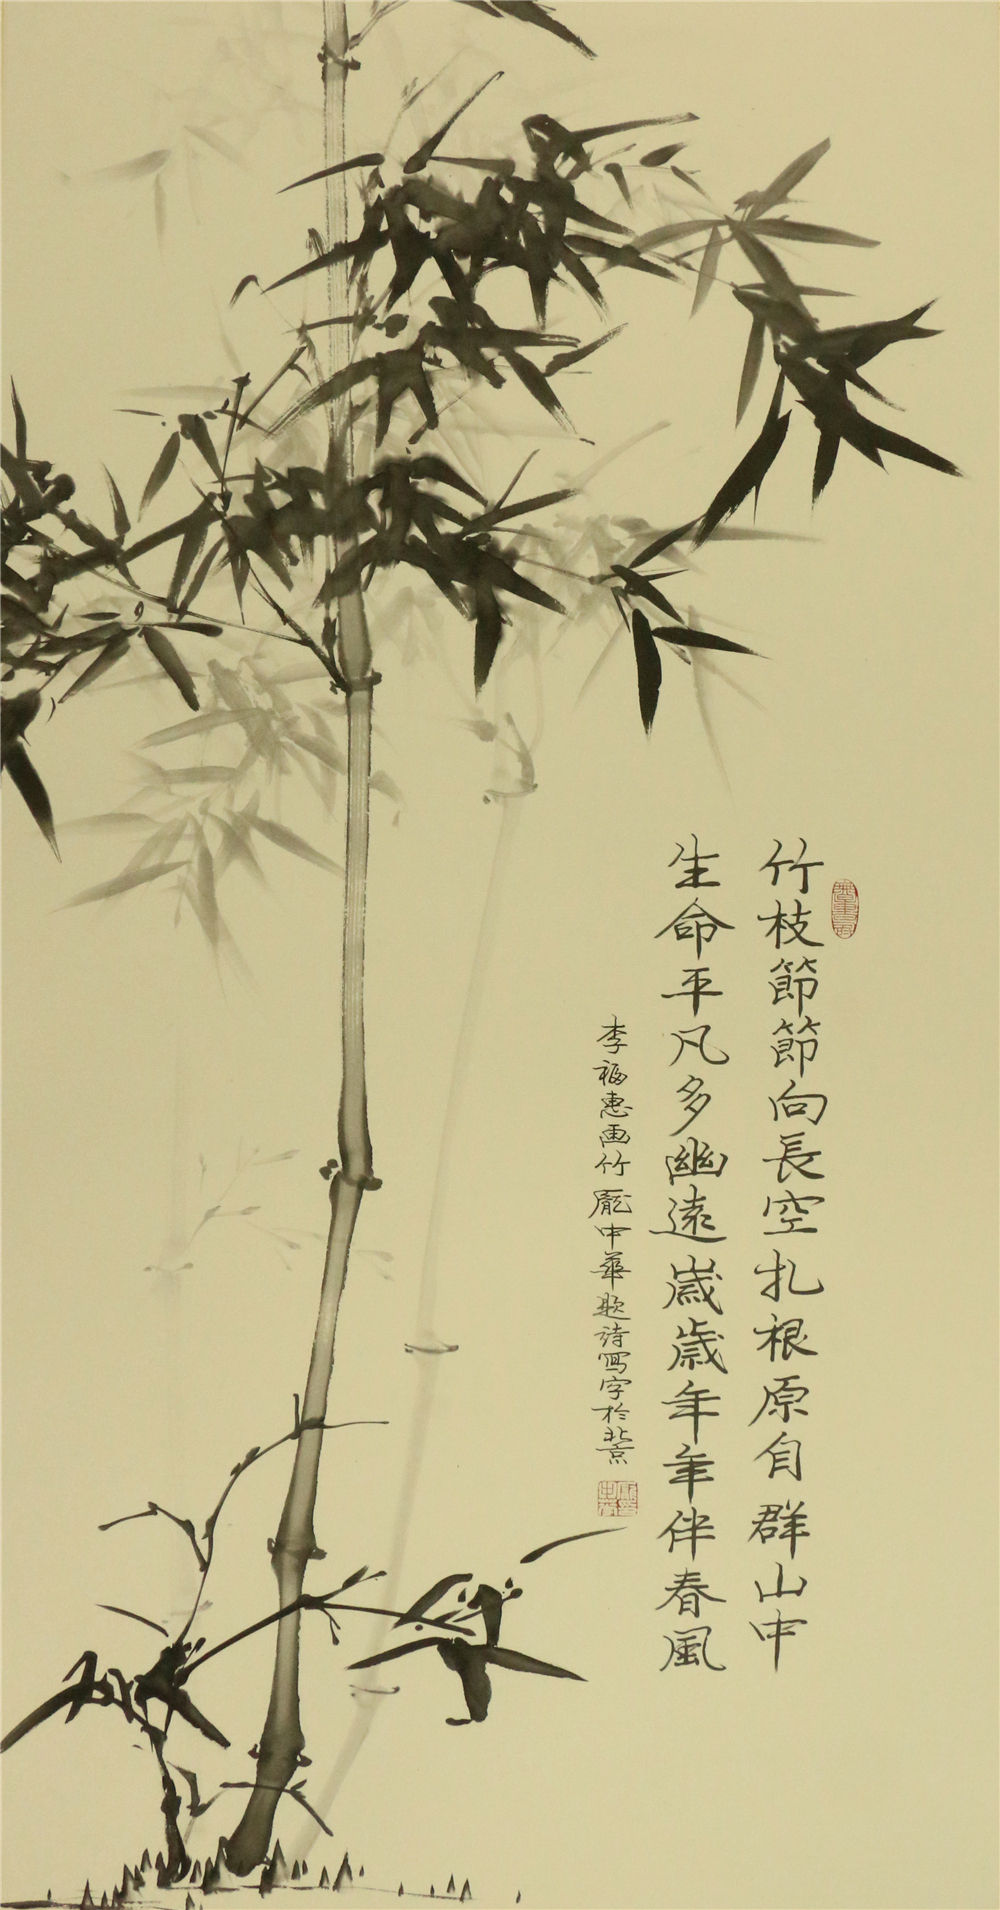 竹枝節節向長空扎根原自群山中
生命平凡多幽遠歲歲年年伴春風
李福惠画竹龐中華題詩寫字於北京